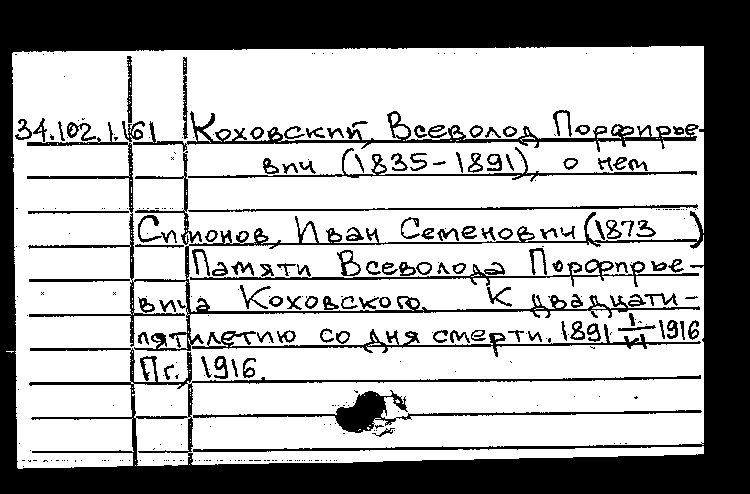 34.102.1.161 Коховский, Всеволод Порфирье-
вич (1835-1891), о нем
Симонов, Иван Семенович (1873 )
Памяти Всеволода Порфирье-
вича Коховского. К двадцати-
пятилетию со дня смерти. 1891 1/VI 1916.
Пг., 1916.